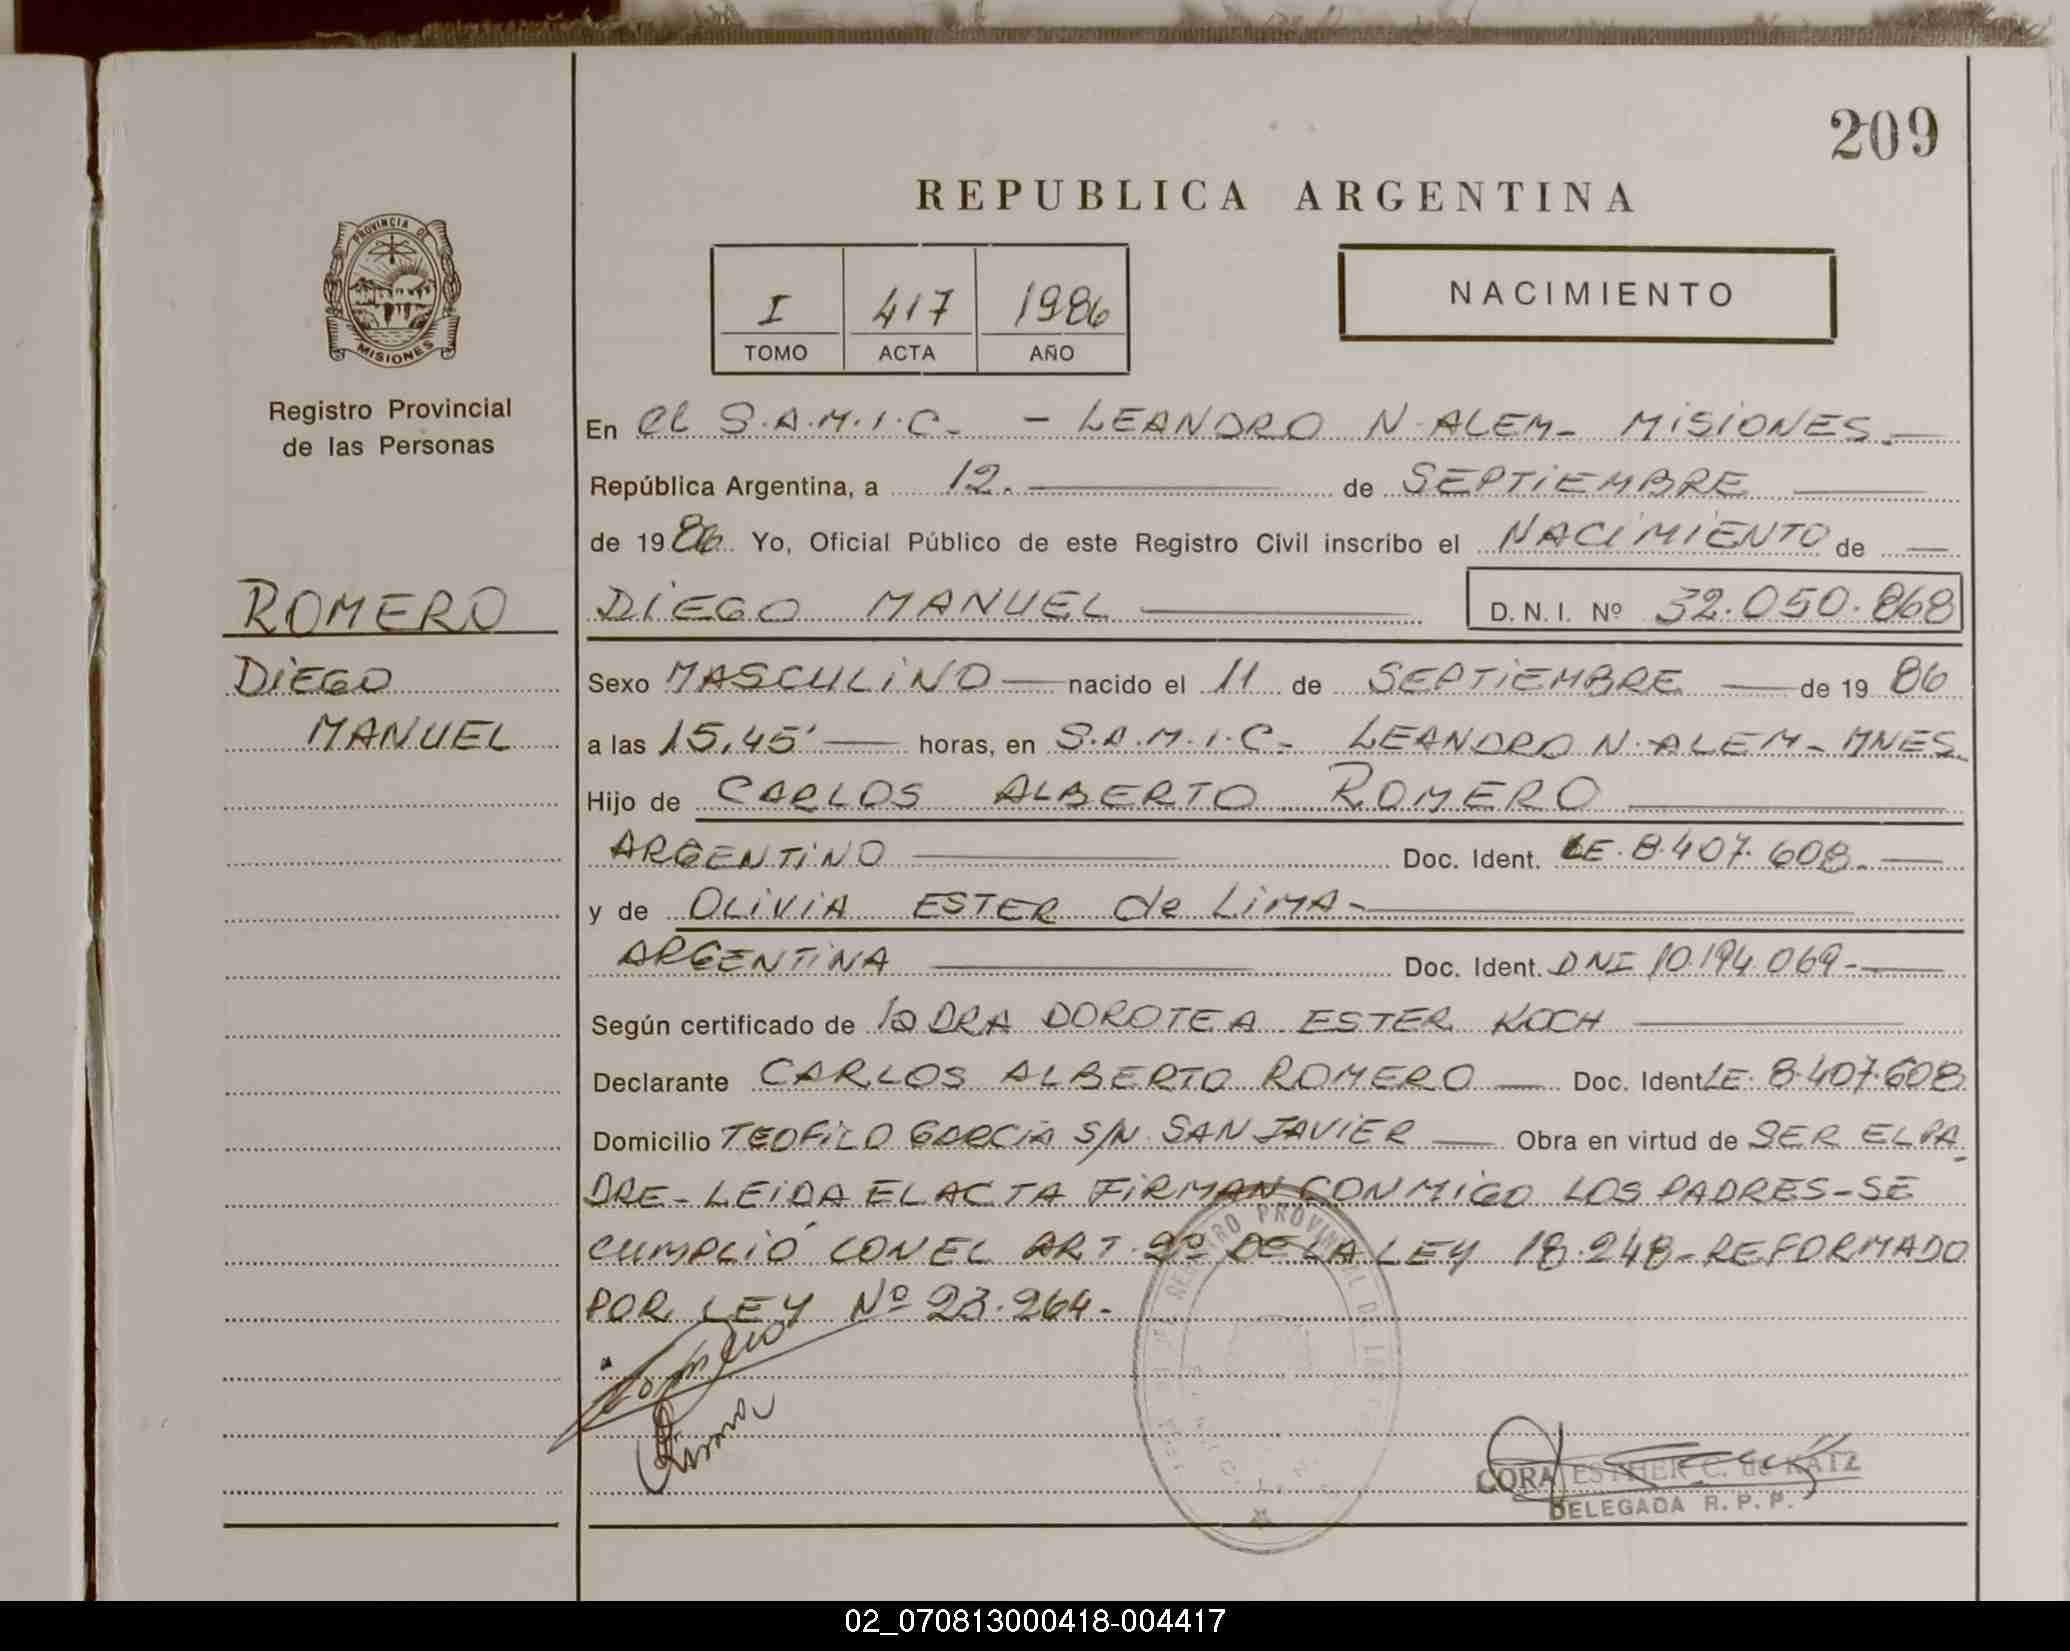 209
REPUBLICA ARGENTINA
PROVINCIA DE
MISIONES
Registro Provincial
de las Personas
I 417 1986
TOMO ACTA AÑO
NACIMIENTO
En el S.A.M.I.C. - LEANDRO N. ALEM - MISIONES.
República Argentina, a 12. de SEPTIEMBRE
de 1986 Yo, Oficial Público de este Registro Civil inscribo el NACIMIENTO de
ROMERO
DIEGO MANUEL D.N.I. Nº 32.050.868
DIEGO
MANUEL
Sexo MASCULINO nacido el 11 de SEPTIEMBRE de 19 86
a las 15,45' horas, en S.A.M.I.C. LEANDRO N. ALEM - MNES.
Hijo de CARLOS ALBERTO ROMERO
ARGENTINO Doc. Ident. LE. 8.407.608.
y de OLIVIA ESTER de LIMA-
ARGENTINA Doc. Ident. DNI 10.194.069-
Según certificado de la DRA DOROTEA ESTER KOCH
Declarante CARLOS ALBERTO ROMERO Doc. Ident LE. 8.407.608
Domicilio TEOFILO GARCIA S/N. SAN JAVIER Obra en virtud de SER EL PA
DRE - LEIDA EL ACTA FIRMAN CONMIGO LOS PADRES - SE
CUMPLIÓ CON EL ART. 2º DE LA LEY 18.248 - REFORMADO
POR LEY Nº 23.264-
CORA ESTHER C. de KATZ
DELEGADA R.P.P.
02_070813000418-004417